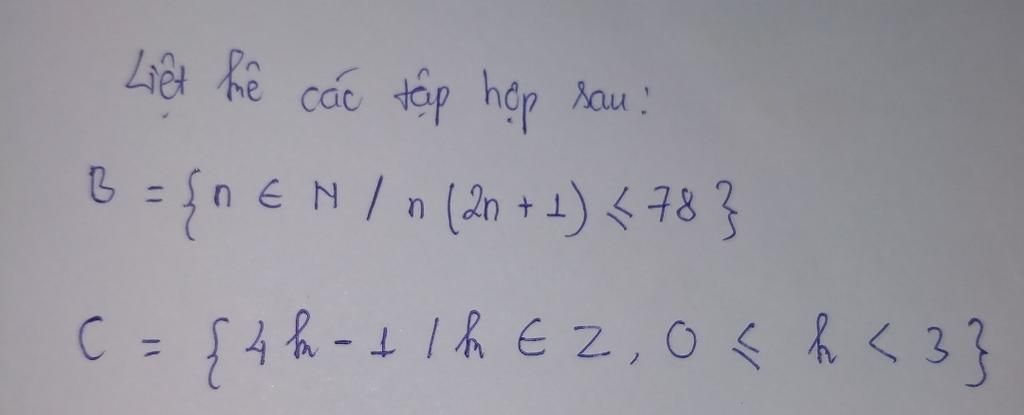 Liệt kê các tập hợp sau:
B = {n ∈ N / n (2n + 1) ⩽ 78}
C = {4k - 1 / k ∈ Z, 0 ⩽ k < 3}